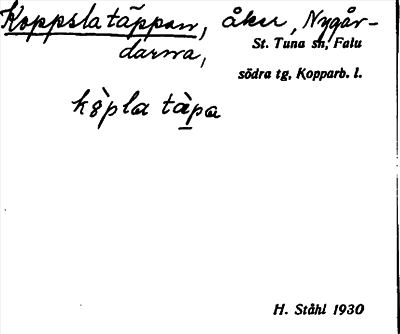 Koppslatäppan, åker, Nygår-
darna,
St. Tuna sn, Falu
södra tg, Kopparb. l.
kòpla tàpa
H. Ståhl 1930